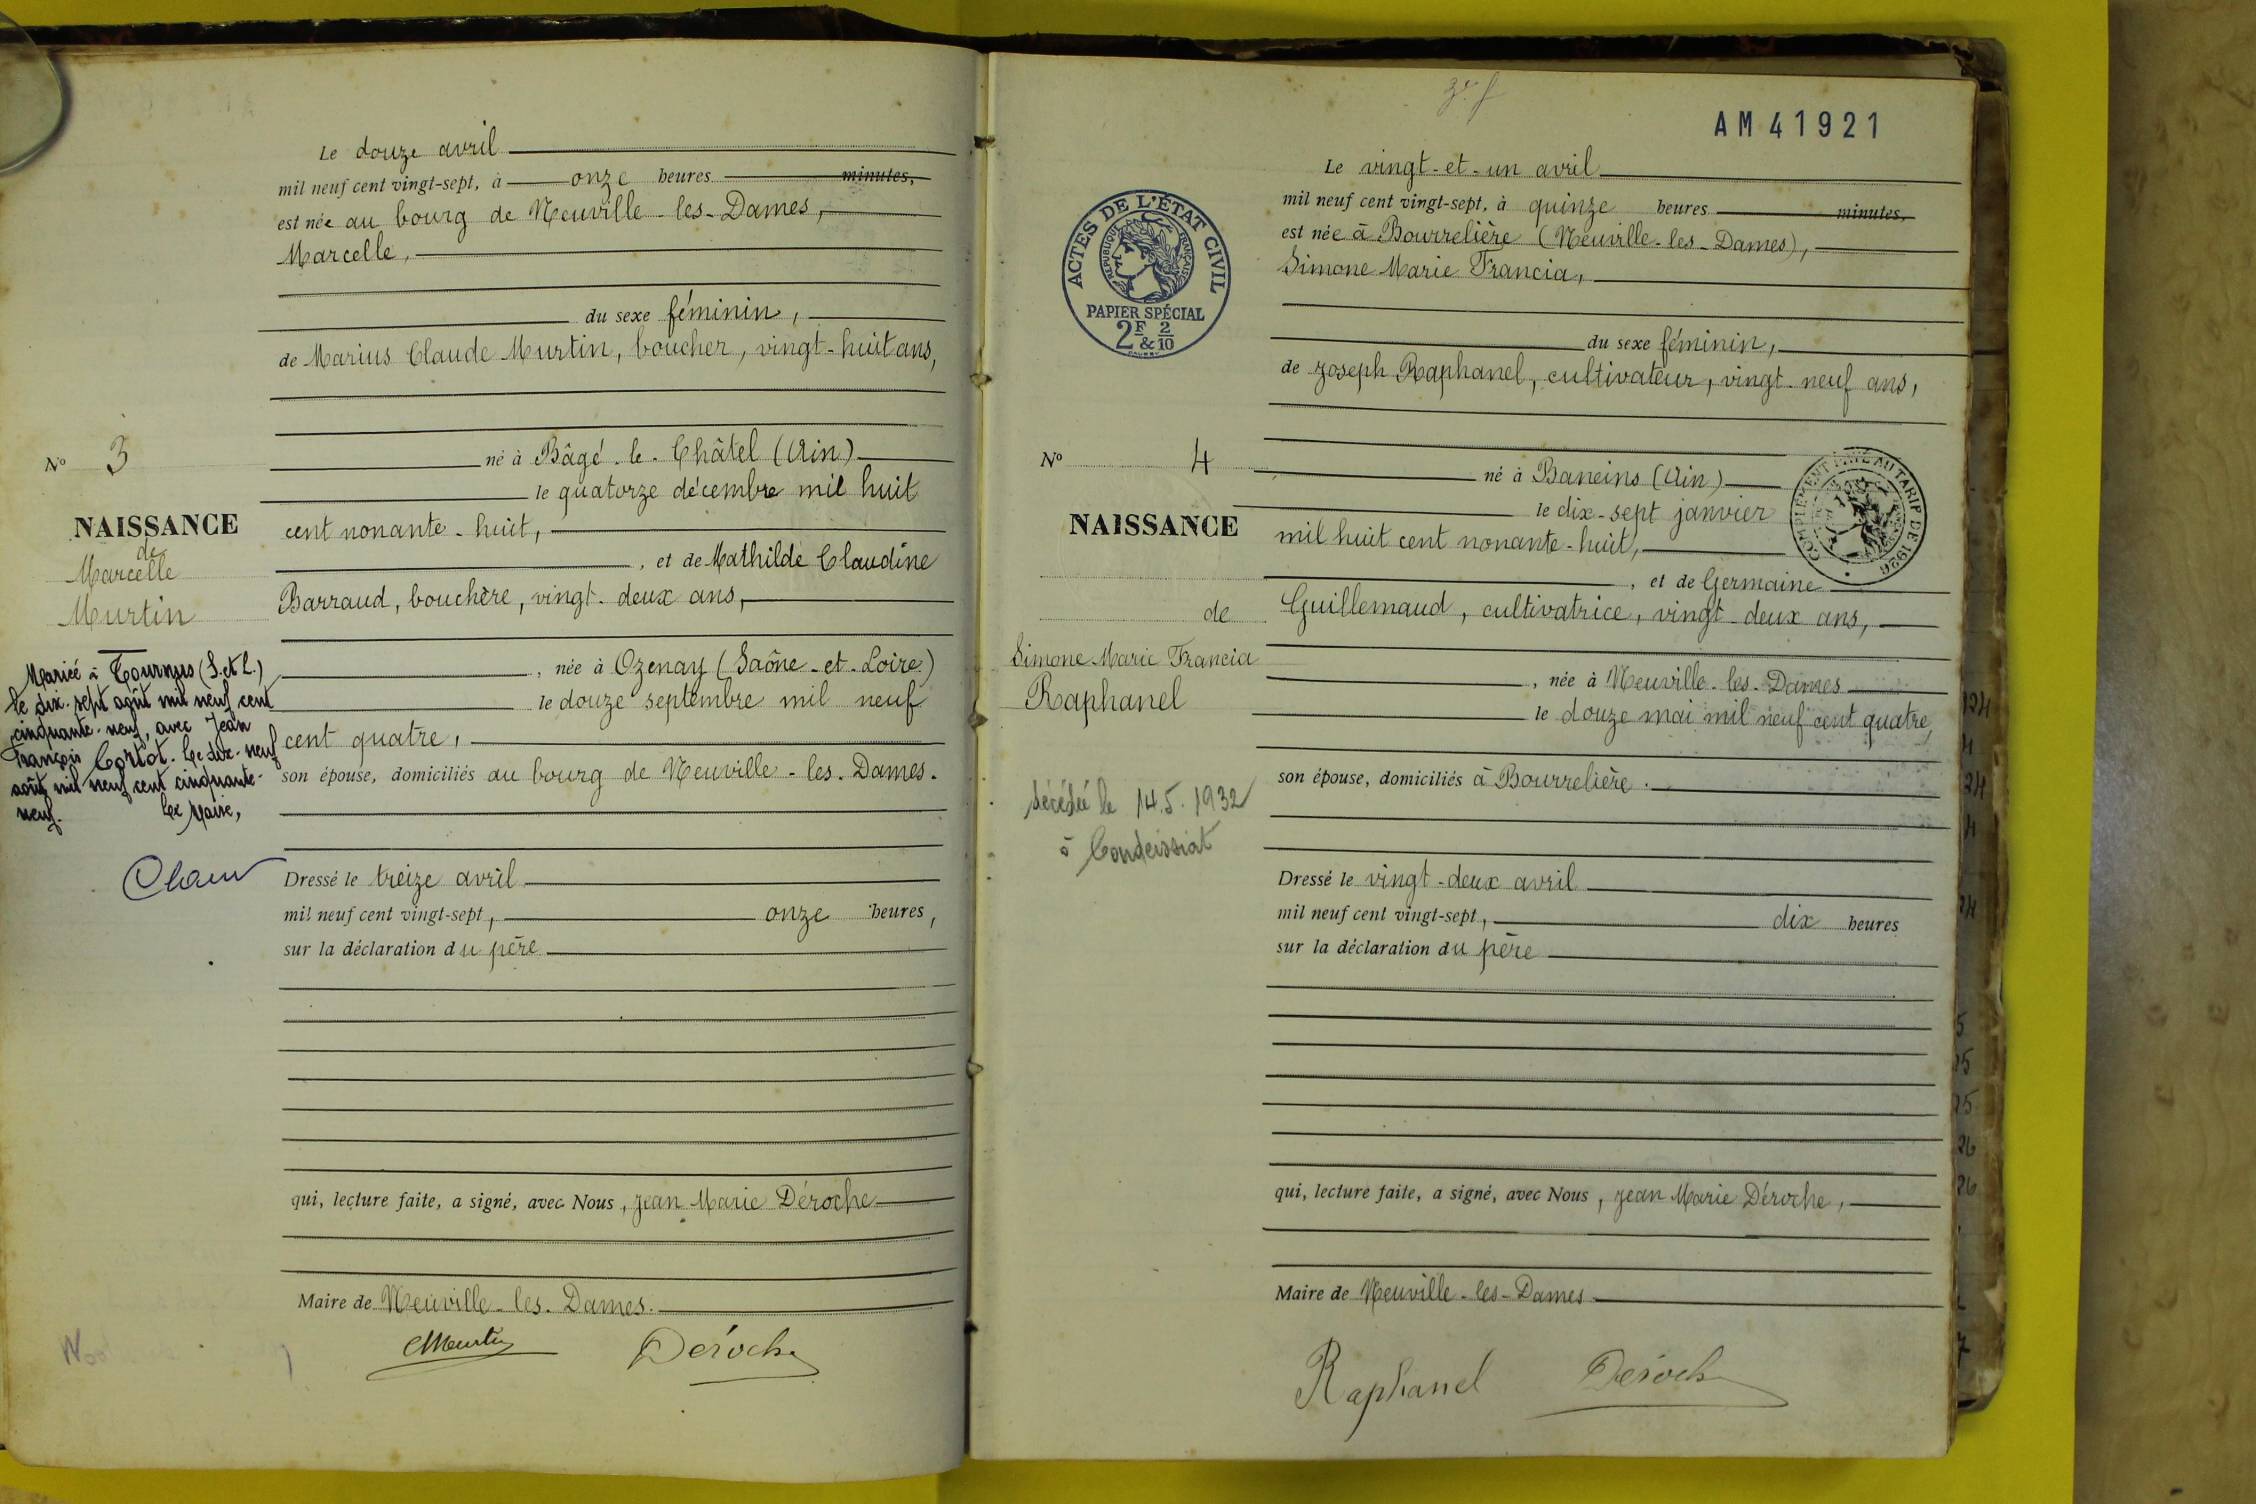 Le douze avril
mil neuf cent vingt-sept, à onze heures minutes,
est née au bourg de Neuville-les-Dames,
Marcelle,
du sexe féminin,
de Marius Claude Murtin, boucher, vingt-huit ans,
né à Bâgé-le-Châtel (Ain)
le quatorze décembre mil huit
cent nonante-huit,
, et de Mathilde Claudine
Barraud, bouchère, vingt-deux ans,
, née à Ozenay (Saône-et-Loire)
le douze septembre mil neuf
cent quatre,
son épouse, domiciliés au bourg de Neuville-les-Dames.
Dressé le treize avril
mil neuf cent vingt-sept, onze heures,
sur la déclaration du père
qui, lecture faite, a signé, avec Nous, Jean Marie Déroche
Maire de Neuville-les-Dames.
Murtin Déroche
No 3
NAISSANCE
de
Marcelle
Murtin
Mariée à Tournus (S.et L.)
le dix-sept août mil neuf cent
cinquante-neuf, avec Jean
François Cortot. Le dix-neuf
août mil neuf cent cinquante-
neuf. Le Maire,
AM41921
ACTES DE L'ÉTAT CIVIL
RÉPUBLIQUE FRANÇAISE
PAPIER SPÉCIAL
2F & 2/10
Le vingt-et-un avril
mil neuf cent vingt-sept, à quinze heures minutes,
est née à Bourrelière (Neuville-les-Dames),
Simone Marie Francia,
du sexe féminin,
de Joseph Raphanel, cultivateur, vingt-neuf ans,
né à Baneins (Ain)
le dix-sept janvier
mil huit cent nonante-huit,
, et de Germaine
Guillemaud, cultivatrice, vingt-deux ans,
, née à Neuville-les-Dames
le douze mai mil neuf cent quatre,
son épouse, domiciliés à Bourrelière.
Dressé le vingt-deux avril
mil neuf cent vingt-sept, dix heures
sur la déclaration du père
qui, lecture faite, a signé, avec Nous, Jean Marie Déroche,
Maire de Neuville-les-Dames
Raphanel Déroche
COMPLÉMENT PAYÉ AU TARIF DE 1926
No 4
NAISSANCE
de
Simone Marie Francia
Raphanel
décédée le 14.5.1932
à Condeissiat